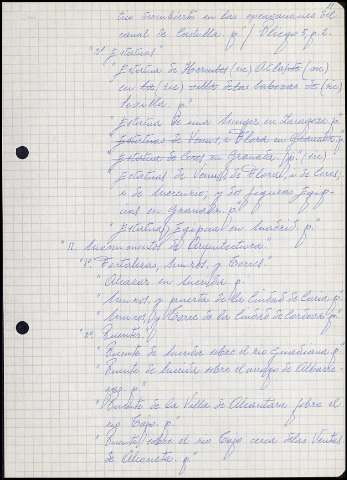 tro trombierta en las excavaciones del
canal de Castilla. p." / Pliego 5, p. 2.
"3º Estatuas"
"Estatua de Hercules (sic) (sic)
en (sic) (sic)
Sevilla. p."
"Estatua de una Muger, en Zaragoza. p."
"Estatuas de Venus, o Flora en Granada. p."
"Estatua de Ceres, en Granada. p." (sic)
"Estatuas de Venus, de Flora, o de Ceres,
o de Mercurio, y 50 pequeñas Egip-
cias en Granada. p."
"Estatuas Egipcias en Madrid. p."
"II. Monumentos de Arquitectura."
"1º. Fortalezas, Muros, y Torres"
"Alcazar en Merida. p.
"Muros, y puerta de la Ciudad de Coria. p."
"Muros, y Torre de la Ciudad de Cordova. p."
"2º. Puentes."
"Puente de Merida sobre el rio Guadiana. p."
"Puente de Merida sobre el arroyo de Albarre-
gas. p."
"Puente de la Villa de Alcantara sobre el
rio Tajo. p."
"Puente sobre el rio Tajo cerca delas Ventas
de Alconeta. p."